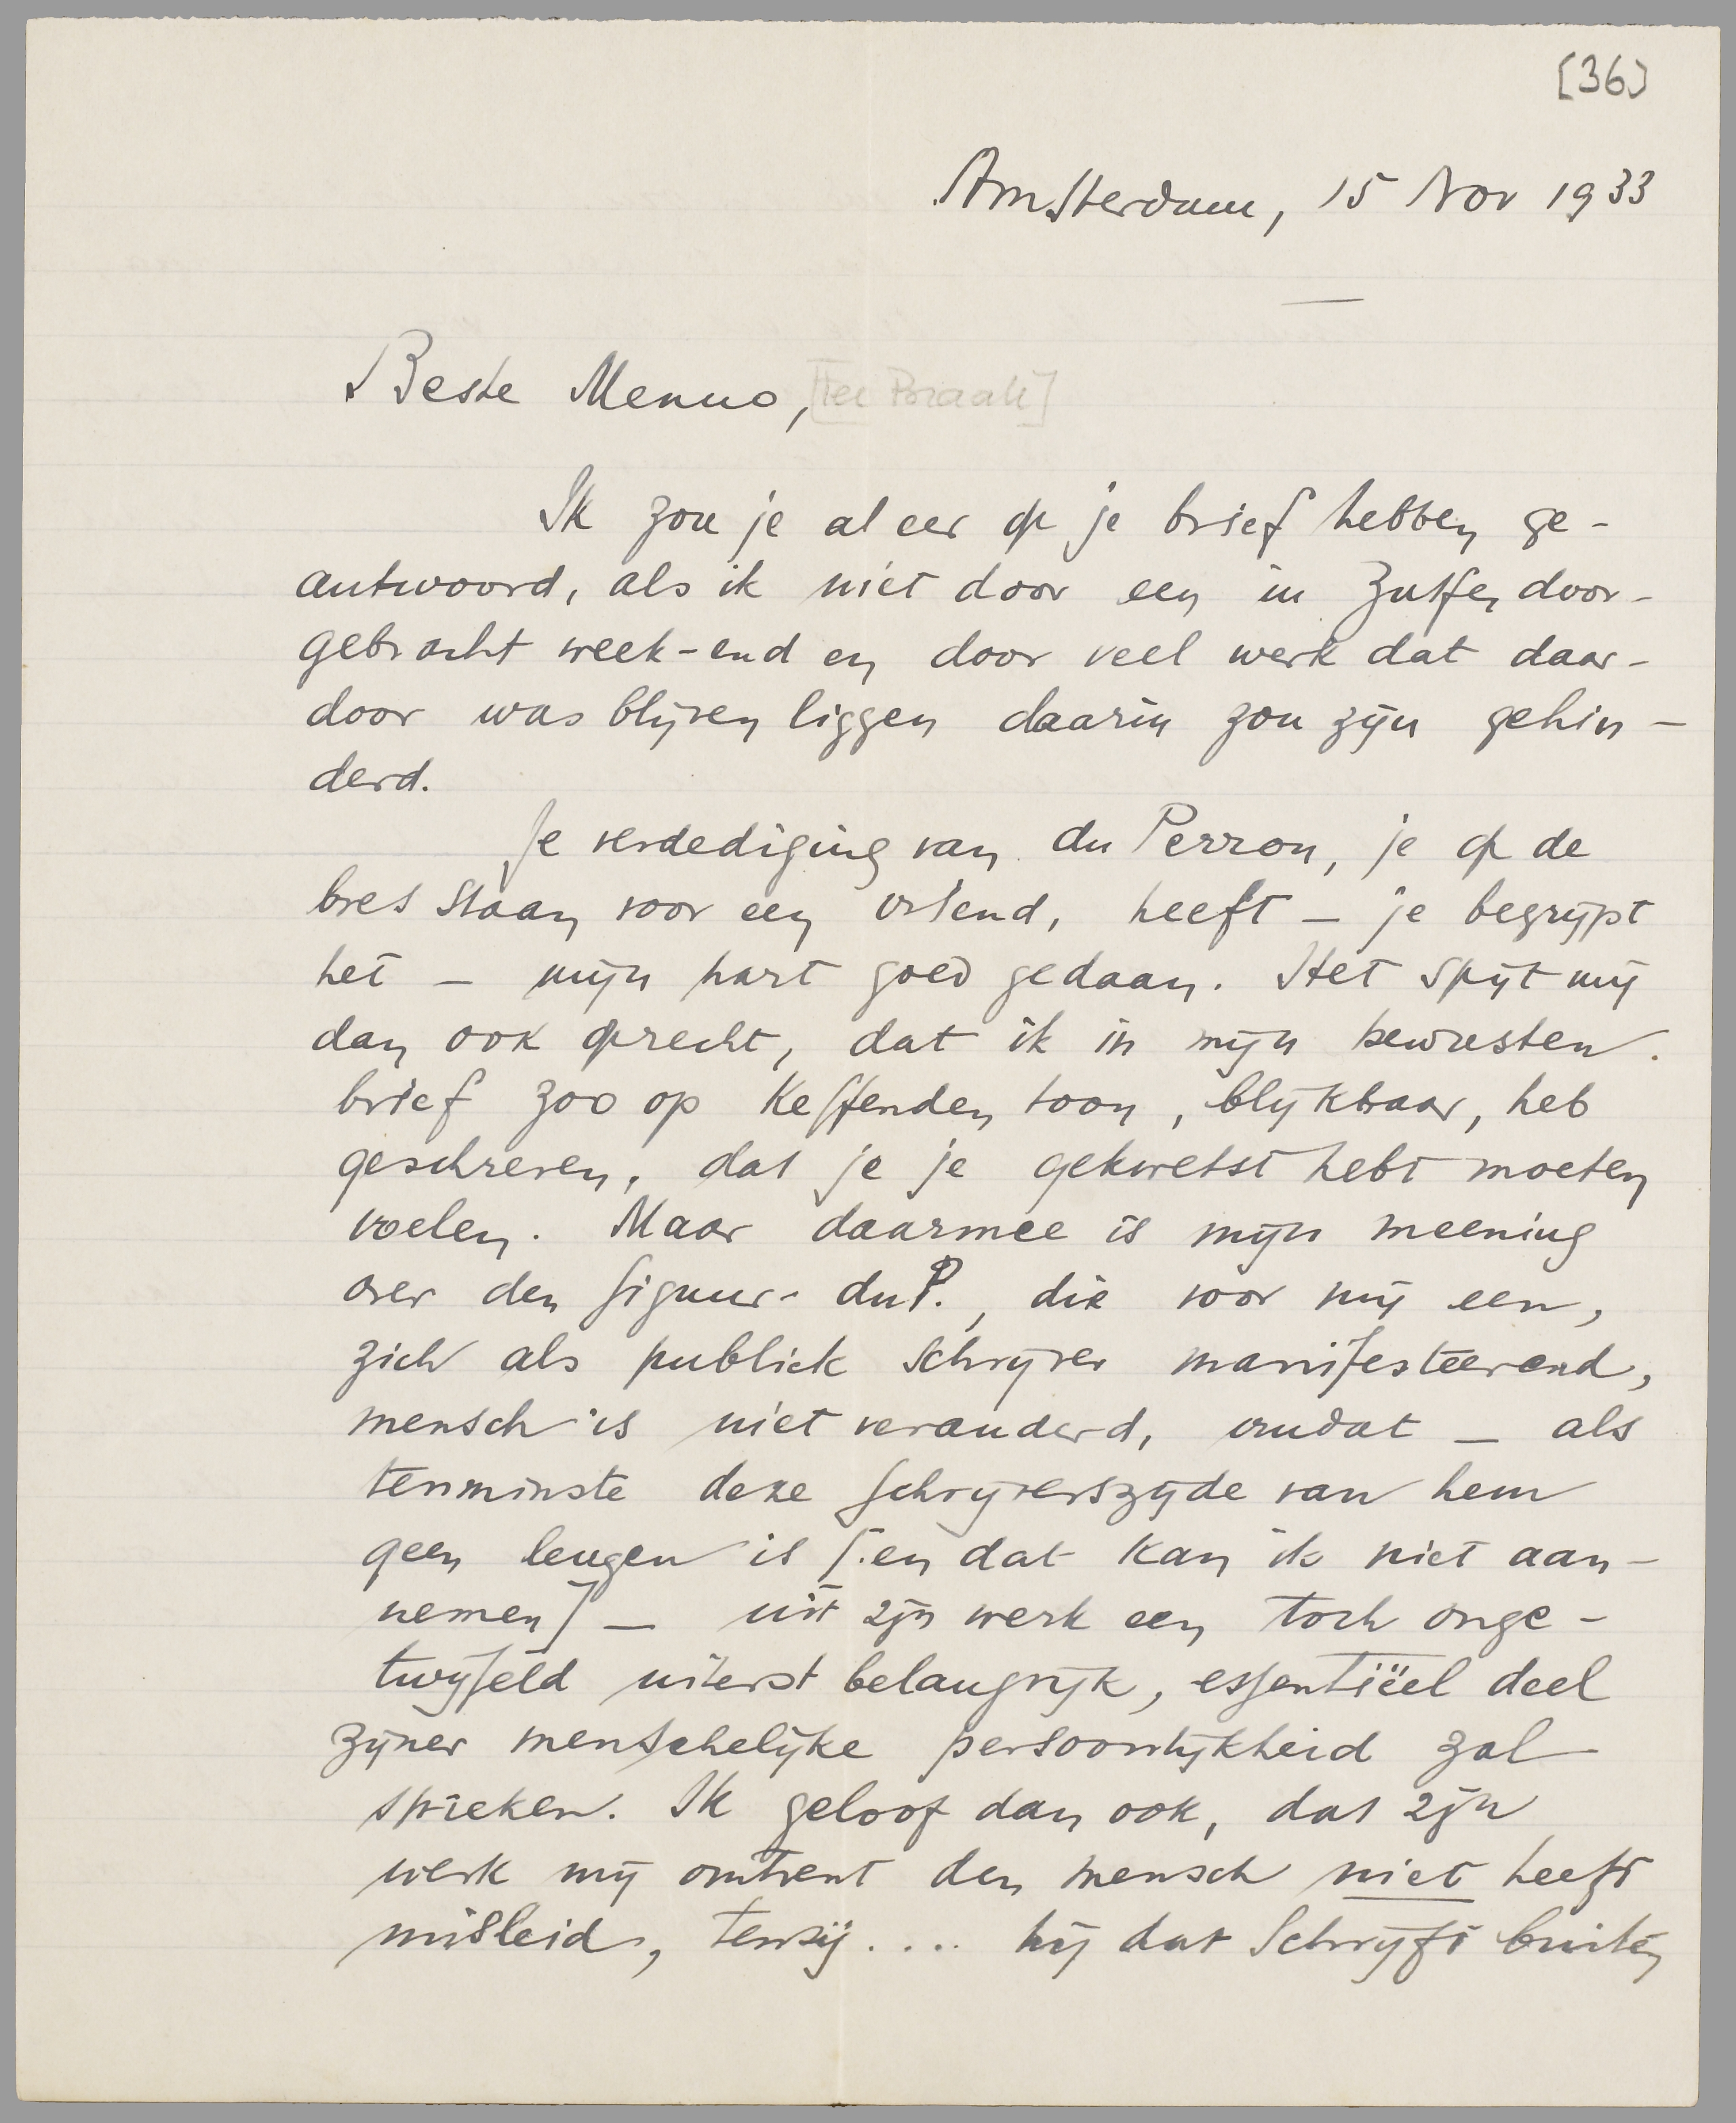 [36]
Amsterdam, 15 Nov 1933
Beste Menno, [ter Braak]
Ik zou je al eer op je brief hebben ge-
antwoord, als ik niet door een in Zutfen door-
gebracht week-end en door veel werk dat daar-
door was blijven liggen daarin zou zijn gehin-
derd.
Je verdediging van du Perron, je op de
bres staan voor een vriend, heeft – je begrijpt
het – mijn hart goed gedaan. Het spijt mij
dan ook oprecht, dat ik in mijn bewusten
brief zoo op keffenden toon, blijkbaar, heb
geschreven, dat je je gekwetst hebt moeten
voelen. Maar daarmee is mijn meening
over den figuur- du P., die voor mij een,
zich als publiek schrijver manifesteerend,
mensch is niet veranderd, omdat – als
tenminste deze schrijverszijde van hem
geen leugen is [en dat kan ik niet aan-
nemen] – uit zijn werk een toch onge-
twijfeld uiterst belangrijk, essentiëel deel
zijner menschelijke persoonlijkheid zal
spreken. Ik geloof dan ook, dat zijn
werk mij omtrent den mensch niet heeft
misleid, tenzij.... hij dat schrijft buiten